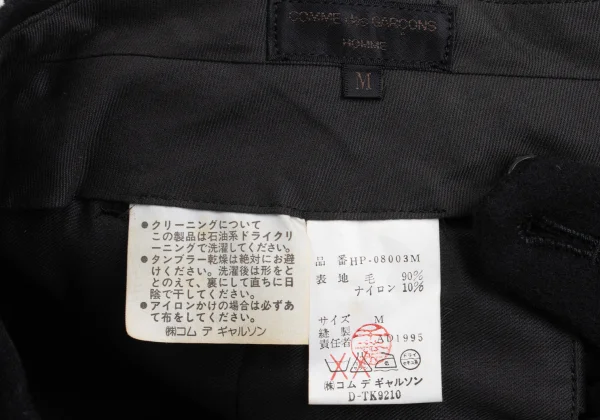 COMME des GARCONS
HOMME
M
●クリーニングについて
この製品は石油系ドライクリ
ーニングで洗濯してください。
●タンブラー乾燥は絶対にお避
けください。洗濯後は形をと
とのえて、裏にして直ちに日
陰で干してください。
●アイロンかけの場合は必ずあ
て布をしてください。
㈱コム デ ギャルソン
品 番 HP-08003M
表 地 毛 90%
ナイロン 10%
サイズ M
縫 製
責任者 AD1995
ドライ
セキユ系
㈱コム デ ギャルソン
D-TK9210